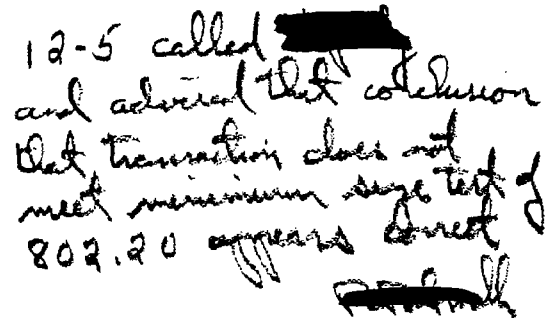 12-5 called
and advised that conclusion
that transaction does not
meet minimum size test of
802.20 appears correct